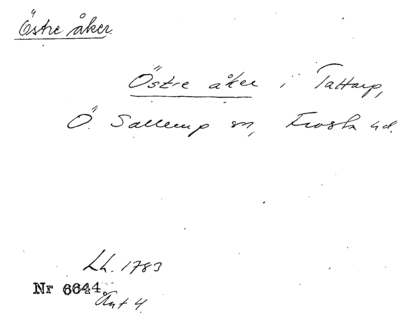 Östre åker.
Östre åker i Tattarp,
Ö. Sallerup sn, Frosta hd.
Lh. 1783
Nr 6644
Ant 4